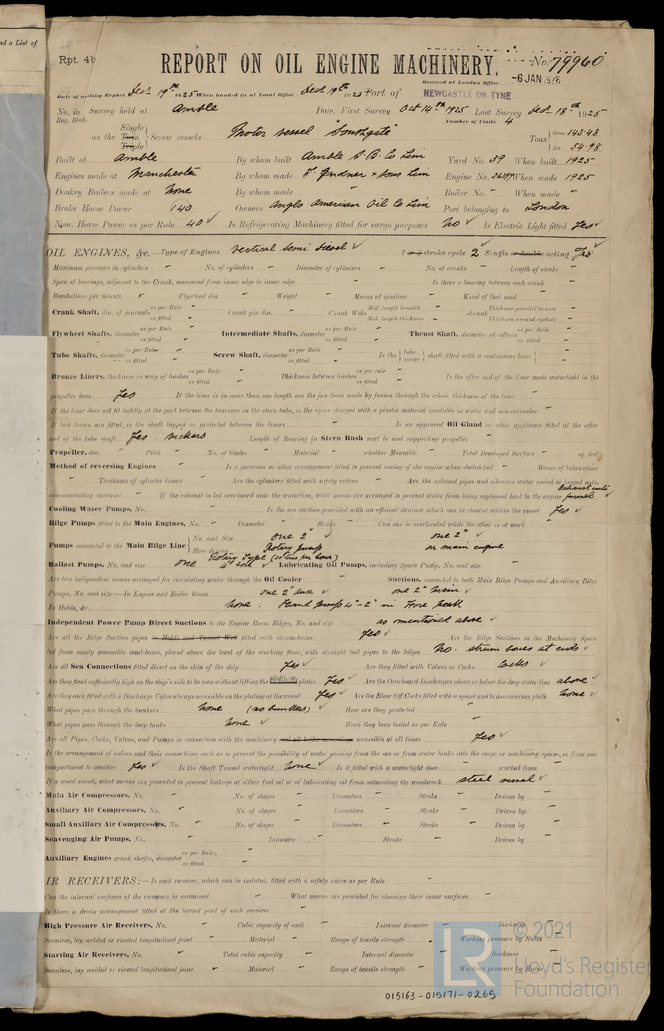 nd a List of
Rpt. 4b
REPORT ON OIL ENGINE MACHINERY.
No. 79960
Received at London Office -6 JAN 1926
Date of writing Report Dec. 19th 1925 When handed in at Local Office Dec 19th 1925 Port of NEWCASTLE-ON-TYNE
No. in Survey held at Amble Date, First Survey Oct 14th 1925 Last Survey Dec. 18th 1925
Reg. Book. Number of Visits 4
on the Single Twin Triple Screw vessels Motor vessel "Southgate" Tons Gross 143.43 Net 54.98
Built at Amble By whom built Amble S. B. Co Lim Yard No. 39 When built 1925
Engines made at Manchester By whom made Engine No. When made 1925
Donkey Boilers made at None By whom made " Boiler No. " When made "
Brake Horse Power 140 Owners Anglo American Oil Co Lim Port belonging to London
Nom. Horse Power as per Rule 40 Is Refrigerating Machinery fitted for cargo purposes No Is Electric Light fitted Yes
OIL ENGINES, &c.—Type of Engines Vertical Semi Diesel 2 or 4 stroke cycle 2 Single or double acting Yes
Maximum pressure in cylinders No. of cylinders Diameter of cylinders No. of cranks Length of stroke
Span of bearings, adjacent to the Crank, measured from inner edge to inner edge Is there a bearing between each crank
Revolutions per minute Flywheel dia. Weight Means of ignition Kind of fuel used
Crank Shaft, dia. of journals as per Rule as fitted Crank pin dia. Crank Webs Mid. length breadth Mid. length thickness shrunk Thickness parallel to axis Thickness around eyehole
Flywheel Shafts, diameter as per Rule as fitted Intermediate Shafts, diameter as per Rule as fitted Thrust Shaft, diameter at collars as per Rule as fitted
Tube Shafts, diameter as per Rule as fitted Screw Shaft, diameter as per Rule as fitted Is the tube screw shaft fitted with a continuous liner
Bronze Liners, thickness in way of bushes as per Rule as fitted Thickness between bushes as per rule as fitted Is the after end of the liner made watertight in the
propeller boss Yes If the liner is in more than one length are the joints made by fusion through the whole thickness of the liner
If the liner does not fit tightly at the part between the bearings in the stern tube, is the space charged with a plastic material insoluble in water and non-corrosive
If two liners are fitted, is the shaft lapped or protected between the liners Is an approved Oil Gland or other appliance fitted at the after
end of the tube shaft Yes Vickers Length of Bearing in Stern Bush next to and supporting propeller
Propeller, dia. Pitch No. of blades Material whether Moveable Total Developed Surface sq. feet
Method of reversing Engines Is a governor or other arrangement fitted to prevent racing of the engine when declutched Means of lubrication
Thickness of cylinder liners Are the cylinders fitted with safety valves Are the exhaust pipes and silencers water cooled or lagged with
non-conducting material If the exhaust is led overboard near the waterline, what means are arranged to prevent water from being syphoned back to the engine Exhaust into funnel
Cooling Water Pumps, No. Is the sea suction provided with an efficient strainer which can be cleared within the vessel Yes
Bilge Pumps fitted to the Main Engines, No. Diameter Stroke Can one be overhauled while the other is at work
Pumps connected to the Main Bilge Line No. and Size one 2" one 2"
How driven Rotary pump on main engine
Ballast Pumps, No. and size one Rotary Type (20 tons per hour) Lubricating Oil Pumps, including Spare Pump, No. and size
Are two independent means arranged for circulating water through the Oil Cooler Suctions, connected to both Main Bilge Pumps and Auxiliary Bilge
Pumps, No. and size:—In Engine and Boiler Room one 2" aux one 2" main
In Holds, &c. None. Hand pump 4"-2" in Fore Peak
Independent Power Pump Direct Suctions to the Engine Room Bilges, No. and size as mentioned above
Are all the Bilge Suction pipes in Holds and Tunnel Well fitted with strum-boxes Yes Are the Bilge Suctions in the Machinery Space
led from easily accessible mud-boxes, placed above the level of the working floor, with straight tail pipes to the bilges No. strum boxes at ends
Are all Sea Connections fitted direct on the skin of the ship Yes Are they fitted with Valves or Cocks Cocks
Are they fixed sufficiently high on the ship's side to be seen without lifting the platform plates Yes Are the Overboard Discharges above or below the deep water line above
Are they each fitted with a Discharge Valve always accessible on the plating of the vessel Yes Are the Blow Off Cocks fitted with a spigot and brass covering plate None
What pipes pass through the bunkers None (no bunkers) How are they protected
What pipes pass through the deep tanks None Have they been tested as per Rule
Are all Pipes, Cocks, Valves, and Pumps in connection with the machinery and all boiler mountings accessible at all times Yes
Is the arrangement of valves and their connections such as to prevent the possibility of water passing from the sea or from water tanks into the cargo or machinery spaces, or from one
compartment to another Yes Is the Shaft Tunnel watertight None Is it fitted with a watertight door worked from
If a wood vessel, what means are provided to prevent leakage of either fuel oil or of lubricating oil from saturating the woodwork steel vessel
Main Air Compressors, No. No. of stages Diameters Stroke Driven by
Auxiliary Air Compressors, No. No. of stages Diameters Stroke Driven by
Small Auxiliary Air Compressors, No. No. of stages Diameters Stroke Driven by
Scavenging Air Pumps, No. Diameter Stroke Driven by
Auxiliary Engines crank shafts, diameter as per Rule as fitted
IR RECEIVERS:—Is each receiver, which can be isolated, fitted with a safety valve as per Rule
Can the internal surfaces of the receivers be examined What means are provided for cleaning their inner surfaces
Is there a drain arrangement fitted at the lowest part of each receiver
High Pressure Air Receivers, No. Cubic capacity of each Internal diameter thickness
Seamless, lap welded or riveted longitudinal joint Material Range of tensile strength Working pressure by Rules
Starting Air Receivers, No. Total cubic capacity Internal diameter thickness
Seamless, lap welded or riveted longitudinal joint Material Range of tensile strength Working pressure by Rules
LR © 2021 Lloyd's Register Foundation
015163-015171-0265